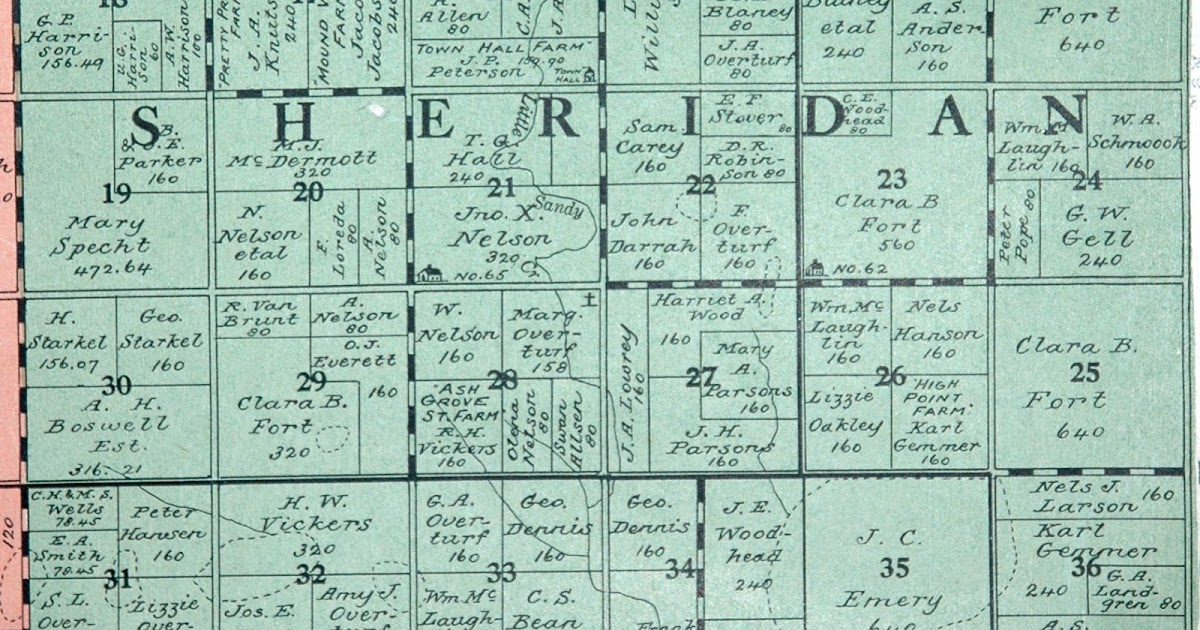 18
G.P.
Harri-
son
156.49
U.G.
Harri-
son
60
A.W.
Harrison
100
"PRETTY PR
FAR
J. A.
Knuts
240
"MOUND V
FAR
Jaco
Jacobs
240
Allen
80
C.A.
J.A.
TOWN HALL FARM"
J.P. 159.90
Peterson
TOWN
HALL
Willi
Blaney
80
J.A.
Overturf
80
Blaney
etal
240
A. S.
Ander-
son
160
Fort
640
S H E R I D A N
B.
& J.E.
Parker
160
19
Mary
Specht
472.64
M.J.
McDermott
320
20
N.
Nelson
etal
160
F.
Loreda
80
A.
Nelson
80
Little
T. G.
Hall
240
21
Jno. X.
Sandy
Nelson
320
Cr.
NO. 65
Sam
Carey
160
E. F.
Stover
80
D.R.
Robin-
son 80
22
John
Darrah
160
F.
Over-
turf
160
C.E.
Wood-
head
80
23
Clara B
Fort
560
NO. 62
Wm. M
Laugh-
lin 160
W. A.
Schmoock
160
24
Peter
Pope 80
G. W.
Gell
240
H.
Starkel
156.07
Geo.
Starkel
160
30
A. H.
Boswell
Est.
316.21
R. Van
Brunt
80
A.
Nelson
80
O.J.
Everett
160
29
Clara B.
Fort
320
W.
Nelson
160
Marg.
Over-
turf
158
28
"ASH
GROVE
ST. FARM"
R. H.
Vickers
160
Olena
Nelson
80
Swan
Allsen
80
J.A. Lowrey
160
Harriet A.
Wood
160
Mary
A.
Parsons
160
27
J. H.
Parsons
160
Wm Mc
Laugh-
lin
160
Nels
Hanson
160
26
Lizzie
Oakley
160
"HIGH
POINT
FARM."
Karl
Gemmer
160
Clara B.
25
Fort
640
C.H. & M. S.
Wells
78.45
E. A.
Smith
78.45
Peter
Hansen
160
31
S. L.
Over-
Lizzie
Over-
120
H. W.
Vickers
320
32
Jos. E.
Amy J.
Over-
G. A.
Over-
turf
160
Geo.
Dennis
160
33
Wm Mc
Laugh-
C. S.
Bean
Geo.
Dennis
160
34
J. E.
Wood-
head
240
J. C.
35
Emery
640
Nels J.
Larson
160
Karl
Gemmer
36
240
G. A.
Land-
gren 80
A.S.